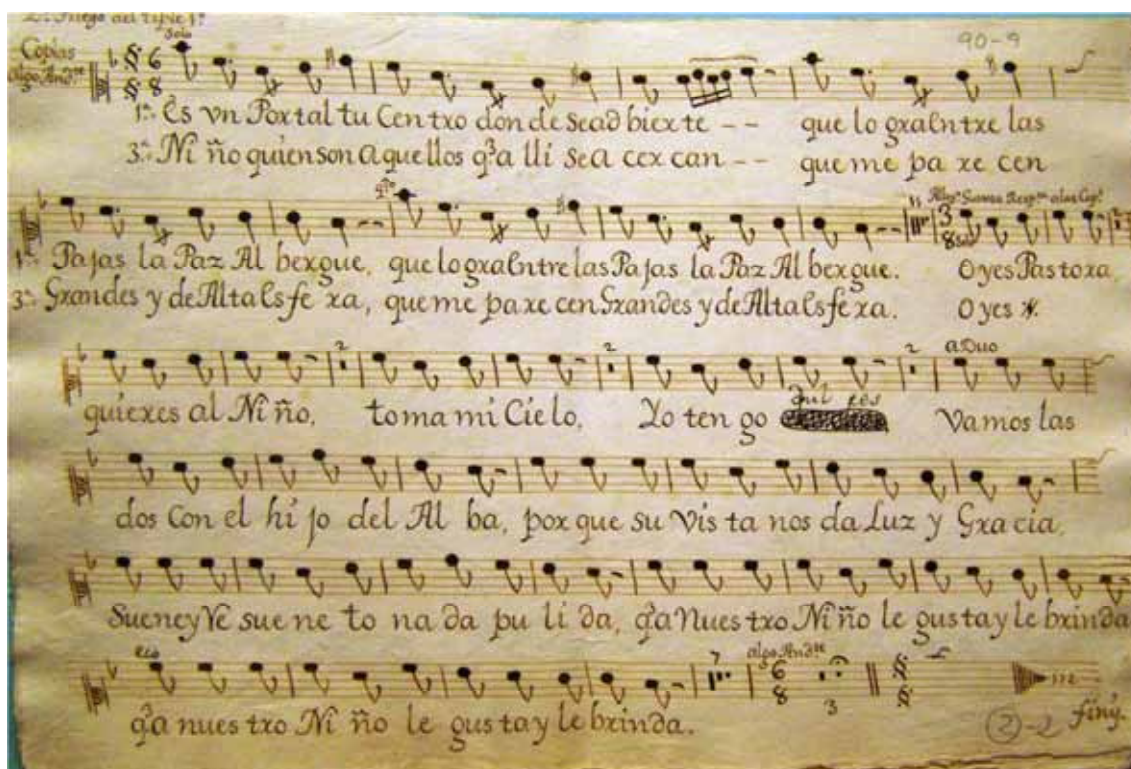 2º Juego del tiple 1º
Coplas Solo 90-9
algo Andte 6 8
1ª Es vn Portal tu Centro donde se ad bierte -- que lo gra Entre las
3ª Ni ño quien son aquellos q̃ a lli se a cer can -- que me pa re cen
Algo
1ª Pajas la Paz Al bergue, que logra Entre las Pajas la Paz Al bergue. Oyes Pastora
3ª Grandes y de Alta Esfe ra, que me pare cen Grandes y de Alta Esfe ra. Oyes
2 2 2 a Duo
quieres al Ni ño, toma mi Cielo, Yo ten go Vamos las
dos Con el hi jo del Al ba, por que su Vis ta nos da Luz y Gracia,
Suene y Ve sue ne to na da pu li da, q̃ a Nues tro Ni ño le gusta y le brinda
eco 7 algo Andte 6 8 3
q̃ a nues tro Ni ño le gus ta y le brinda.
2-2 finy.